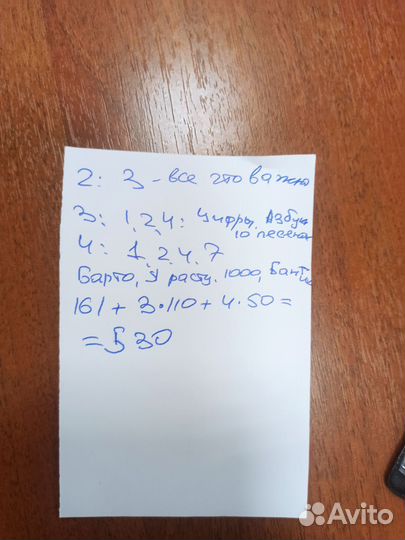 2: 3 - все что важно
3: 1, 2, 4: Цифры, Азбук
10 песенок
4: 1, 2, 4, 7
Барто, Я расту. 1000, Банты
161 + 3·110 + 4·50 =
= 530
Avito